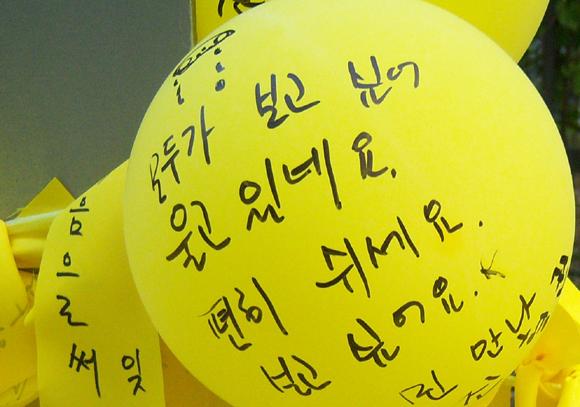 모두가 보고 싶어
울고 있네요.
편히 쉬세요.
보고 싶어요.
만남
음
으
로
써 잊